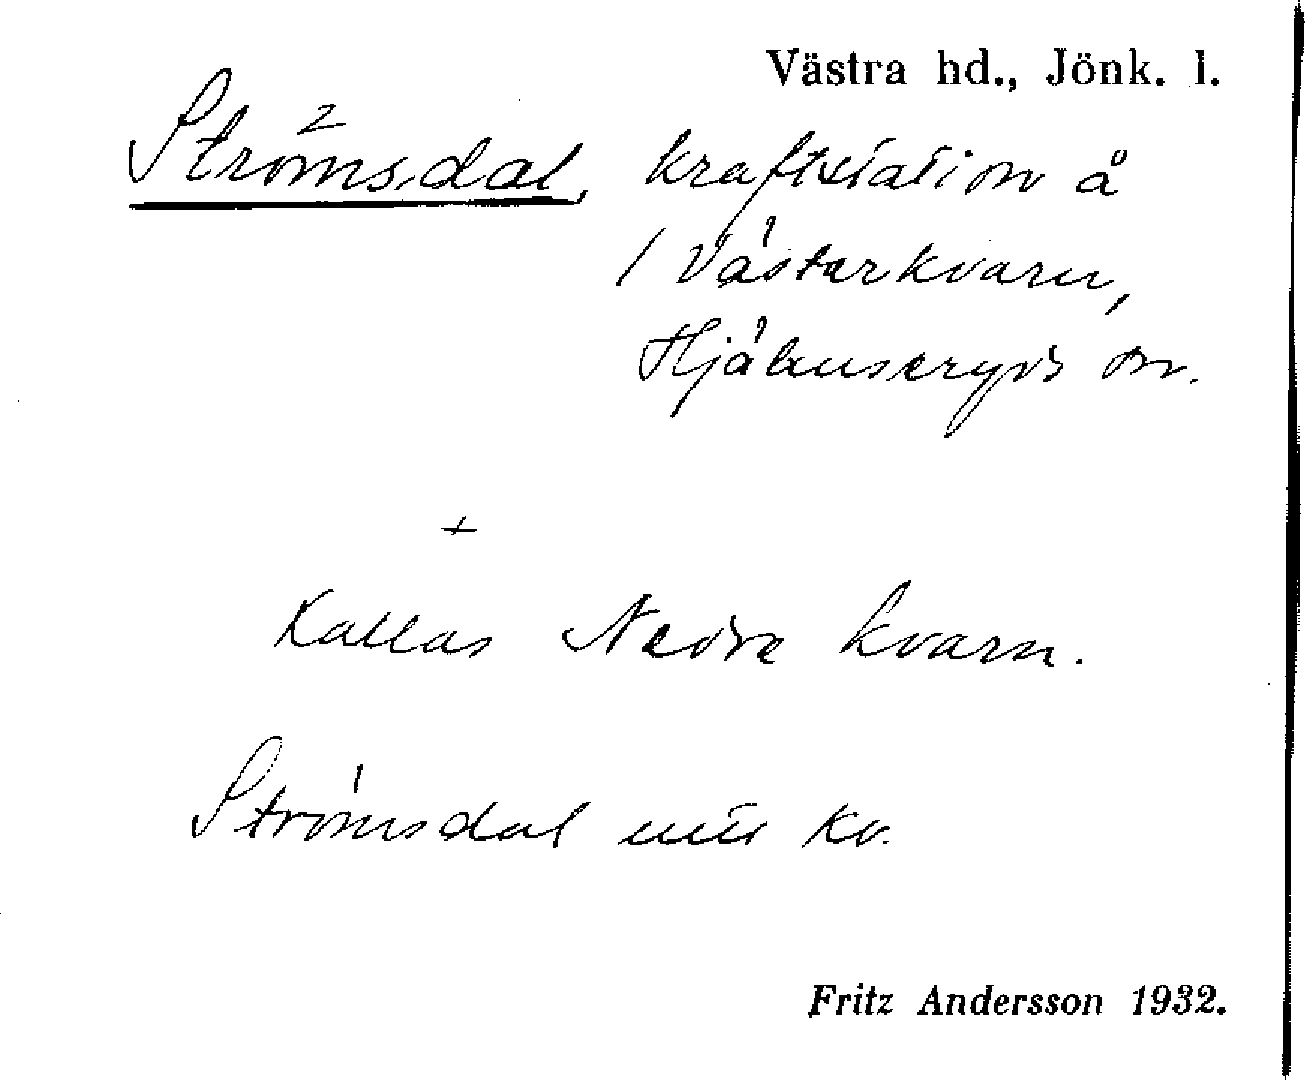 Västra hd., Jönk. l.
Strömsdal, kraftstation å
1 Västerkvarn,
Hjälmseryds sn.
+
Kallas Nedre kvarn.
Strömsdal mtr kv.
Fritz Andersson 1932.